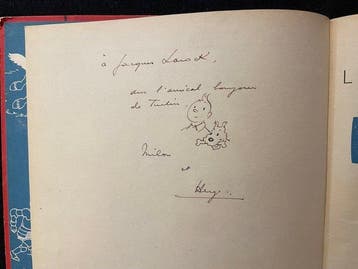 à Jacques Larock,
avec l'amical bonjour
de Tintin,
Milou
et
Hergé
L